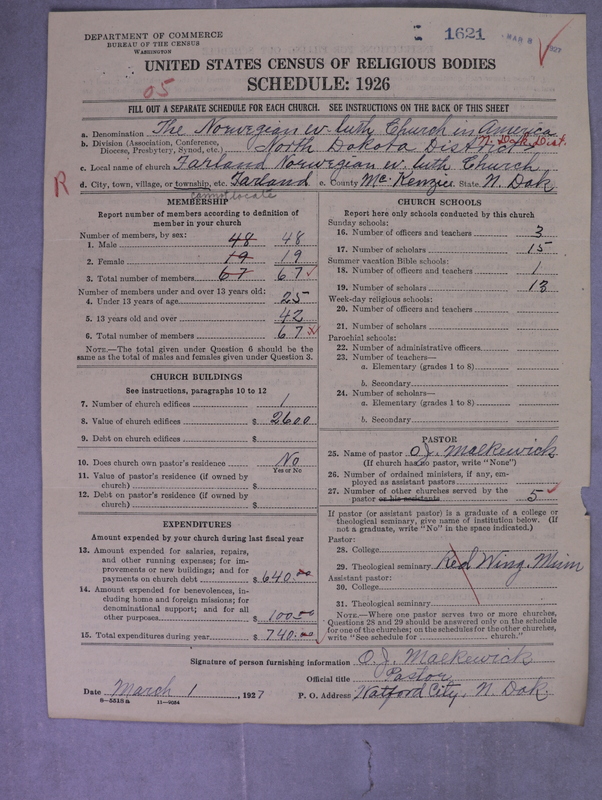 DEPARTMENT OF COMMERCE
BUREAU OF THE CENSUS
WASHINGTON
1621
MAR 8 1927
UNITED STATES CENSUS OF RELIGIOUS BODIES
SCHEDULE: 1926
05
FILL OUT A SEPARATE SCHEDULE FOR EACH CHURCH. SEE INSTRUCTIONS ON THE BACK OF THIS SHEET
a. Denomination The Norwegian ev. luth Church in America
b. Division (Association, Conference, Diocese, Presbytery, Synod, etc.) North Dakota District N. Dak. Dist.
c. Local name of church Farland Norwegian ev. luth Church
R d. City, town, village, or township, etc. Farland e. County Mc. Kenzie f. State N. Dak
cannot locate
MEMBERSHIP
Report number of members according to definition of
member in your church
Number of members, by sex:
1. Male 48 48
2. Female 19 19
3. Total number of members 67 67
Number of members under and over 13 years old:
4. Under 13 years of age 25
5. 13 years old and over 42
6. Total number of members 67
NOTE.—The total given under Question 6 should be the
same as the total of males and females given under Question 3.
CHURCH BUILDINGS
See instructions, paragraphs 10 to 12
7. Number of church edifices 1
8. Value of church edifices $ 2600
9. Debt on church edifices $
10. Does church own pastor's residence No
Yes or No
11. Value of pastor's residence (if owned by
church) $
12. Debt on pastor's residence (if owned by
church) $
EXPENDITURES
Amount expended by your church during last fiscal year
13. Amount expended for salaries, repairs,
and other running expenses; for im-
provements or new buildings; and for
payments on church debt $ 640.00
14. Amount expended for benevolences, in-
cluding home and foreign missions; for
denominational support; and for all
other purposes $ 100.00
15. Total expenditures during year $ 740.00
CHURCH SCHOOLS
Report here only schools conducted by this church
Sunday schools:
16. Number of officers and teachers 3
17. Number of scholars 15
Summer vacation Bible schools:
18. Number of officers and teachers 1
19. Number of scholars 13
Week-day religious schools:
20. Number of officers and teachers
21. Number of scholars
Parochial schools:
22. Number of administrative officers
23. Number of teachers—
a. Elementary (grades 1 to 8)
b. Secondary
24. Number of scholars—
a. Elementary (grades 1 to 8)
b. Secondary
PASTOR
25. Name of pastor O. J. Malkewick
(If church has no pastor, write "None")
26. Number of ordained ministers, if any, em-
ployed as assistant pastors
27. Number of other churches served by the
pastor or his assistants 5
If pastor (or assistant pastor) is a graduate of a college or
theological seminary, give name of institution below. (If
not a graduate, write "No" in the space indicated.)
Pastor:
28. College
29. Theological seminary Red Wing, Minn
Assistant pastor:
30. College
31. Theological seminary
NOTE.—Where one pastor serves two or more churches,
Questions 28 and 29 should be answered only on the schedule
for one of the churches; on the schedules for the other churches,
write "See schedule for church."
Signature of person furnishing information O. J. Malkewick
Official title Pastor
Date March 1, 1927 P. O. Address Watford City, N. Dak.
8-5518a 11-9034